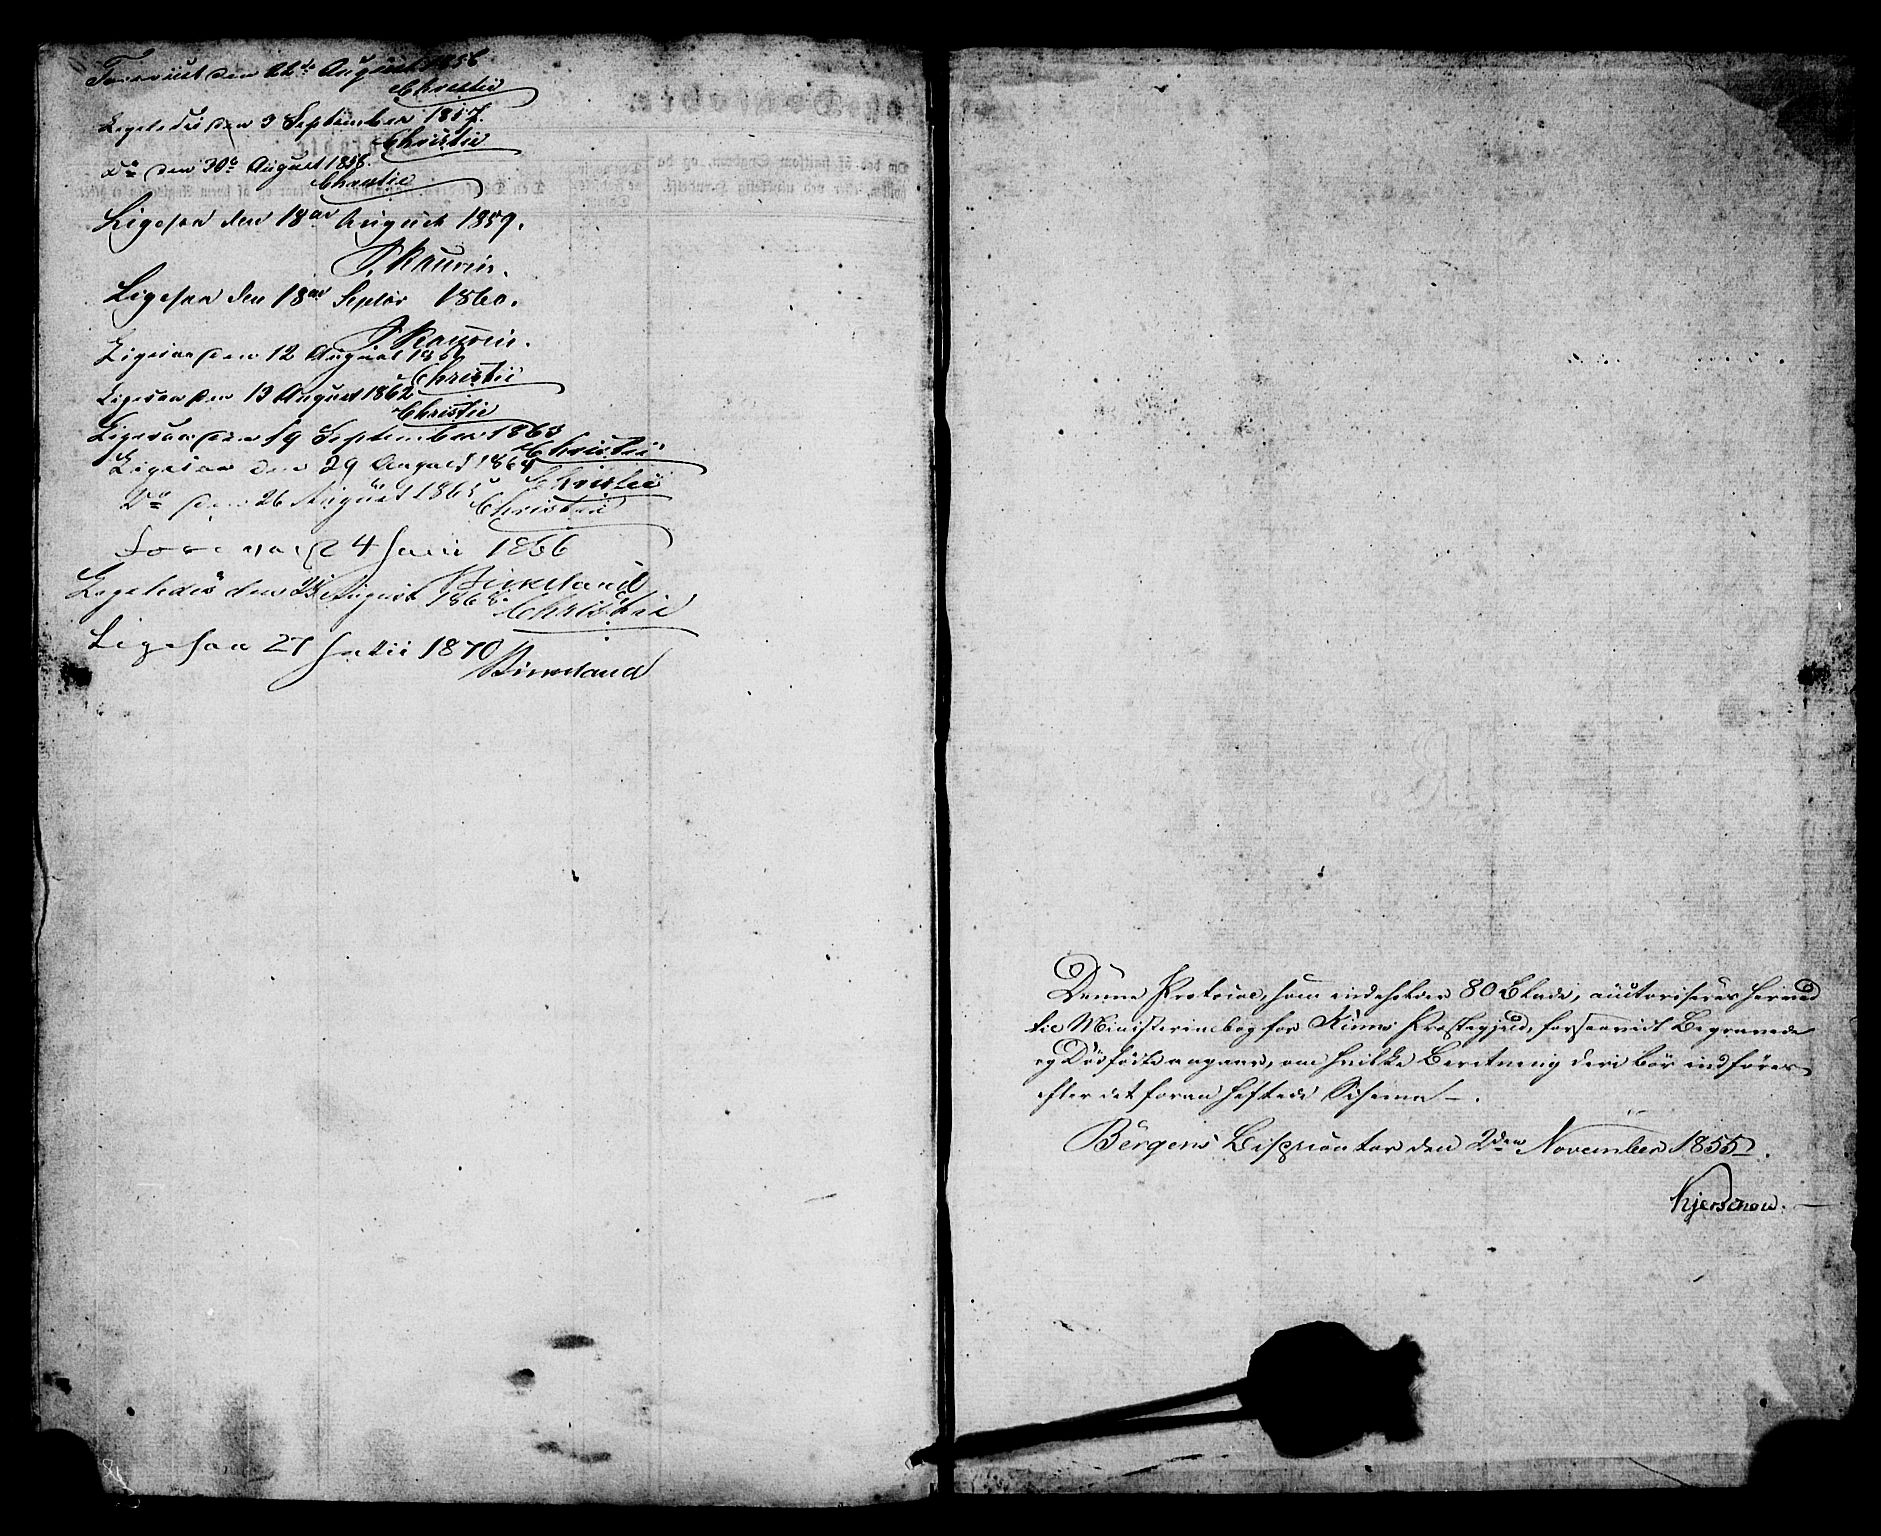 Foreviist den 22de August 1856
Christie
Ligeledes den 3 September 1857.
Christie
Do den 30te August 1858.
Christie
Ligesaa den 18de August 1859.
Kaurin.
Ligesaa den 18de Septbr 1860.
Kaurin.
Ligesaa den 12 August 1861
Christie
Ligesaa den 13 August 1862
Christie
Ligesaa den 19 September 1863
Christie
Ligesaa den 29 August 1864
Christie
Do den 26 August 1865
Christie
24 Juli 1866
Birkeland
Ligeledes den August 1868.
Christie
Ligesaa 27 Juli 1870
Birkeland
Denne Protocol, som indeholder 80 Blade, autoriseres herved
til Ministerialbog for Kinns Præstegjeld, forsaavidt Begravede
og Dødfødte angaaer, om hvilke Beretning deri bør indføres
efter det foran heftede Schema.
Bergens Bispcontor den 2den November 1855.
Kjerschow.